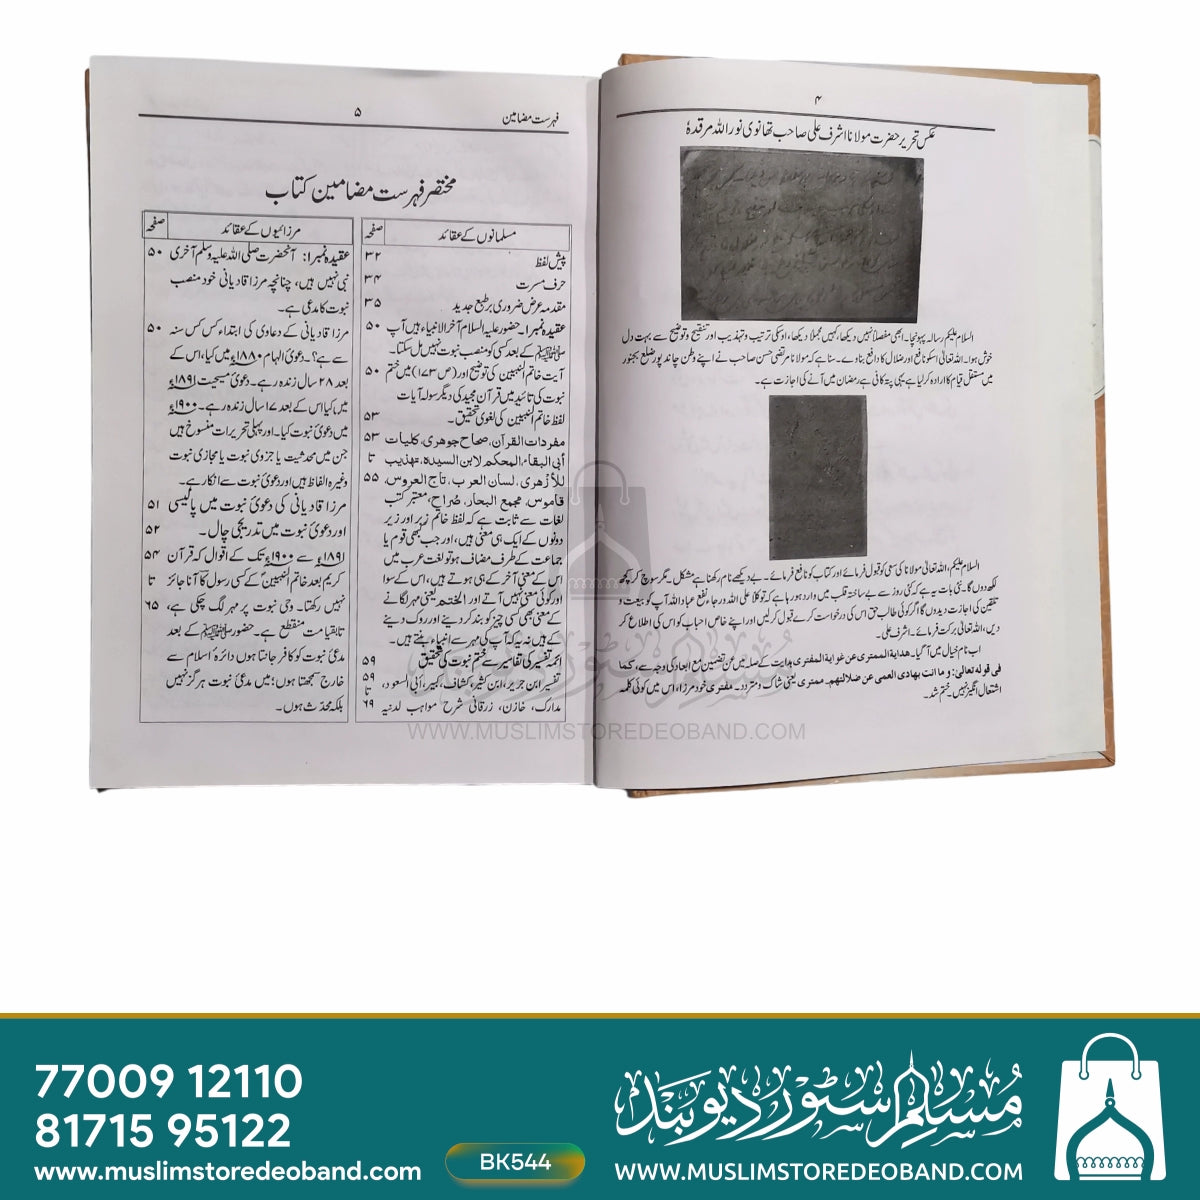 ۴
عکس تحریر حضرت مولانا اشرف علی صاحب تھانوی نور اللہ مرقدہٗ
السلام علیکم رسالہ پہونچا۔ ابھی مفصلاً نہیں دیکھا، کہیں مجملاً دیکھا، اوسکی ترتیب و تہذیب اور تنقیح و توضیح سے بہت دل
خوش ہوا۔ اللہ تعالیٰ اسکو نافع اور ضلال کا دافع بناوے۔ سنا ہے کہ مولانا مرتضیٰ حسن صاحب نے اپنے وطن چاند پور ضلع بجنور
میں مستقل قیام کا ارادہ کرلیا ہے یہی پتہ کافی ہے رمضان میں آنے کی اجازت ہے۔
السلام علیکم، اللہ تعالیٰ مولانا کی سعی کو قبول فرمائے اور کتاب کو نافع فرمائے۔ بے دیکھے نام رکھنا ہے مشکل۔ مگر سوچ کر کچھ
لکھ دوں گا۔ نئی بات یہ ہے کہ کئی روز سے بے ساختہ قلب میں وارد ہو رہا ہے کہ توکلاً علی اللہ ورجاء نفع عباد اللہ آپ کو بیعت و
تلقین کی اجازت دیدوں گا اگر کوئی طالب حق اس کی درخواست کرے قبول کرلیں اور اپنے خاص احباب کو اس کی اطلاع کر
دیں، اللہ تعالیٰ برکت فرمائے۔ اشرف علی۔
اب نام خیال میں آ گیا۔ هداية الممترى عن غواية المفترى ہدایت کے صلہ میں عن تضمین مع ابعاد کی وجہ سے، كما
فى قوله تعالى: و ما انت بهادى العمى عن ضلالتهم۔ ممتری یعنی شاک و متردد۔ مفتری خود مرزا، اس میں کوئی کلمہ
اشتعال انگیز نہیں۔ ختم شد۔
فہرست مضامین
۵
مختصر فہرست مضامین کتاب
مسلمانوں کے عقائد صفحہ
پیش لفظ ۳۲
حرف مسرت ۳۴
مقدمہ عرض ضروری بر طبع جدید ۳۵
عقیدہ نمبر ۱۔ حضور علیہ السلام آخر الانبیاء ہیں آپ ۵۰
ﷺ کے بعد کسی کو منصب نبوت نہیں مل سکتا۔
آیت خاتم النبیین کی توضیح اور (ص ۱۷۳) میں ختم ۵۰
نبوت کی تائید میں قرآن مجید کی دیگر سولہ آیات
لفظ خاتم النبیین کی لغوی تحقیق۔ ۵۳
مفردات القرآن، صحاح جوهری، کلیات ۵۳
أبی البقاء، المحکم لابن السیدہ، تهذیب تا
للأزهری، لسان العرب، تاج العروس، ۵۵
قاموس، مجمع البحار، صُراح، معتبر کتب
لغات سے ثابت ہے کہ لفظ خاتم زبر اور زیر
دونوں کے ایک ہی معنی ہیں، اور جب بھی قوم یا
جماعت کے طرف مضاف ہو تو لغت عرب میں
اس کے معنی آخر کے ہی ہوتے ہیں، اس کے سوا
اور کوئی معنی نہیں آتے اور الختم یعنی مہر لگانے
کے معنی بھی کسی چیز کو بند کرنے اور روک دینے
کے ہیں نہ یہ کہ آپ کی مہر سے انبیاء بنتے ہیں۔
ائمہ تفسیر کی تفاسیر سے ختم نبوت کی تحقیق ۵۹
تفسیر ابن جریر، ابن کثیر، کشاف، کبیر، أبی السعود، ۵۹ تا
مدارک، خازن، زرقانی شرح مواہب لدنیہ ۶۹
مرزائیوں کے عقائد صفحہ
عقیدہ نمبر ۱: آنحضرت صلی اللہ علیہ وسلم آخری ۵۰
نبی نہیں ہیں، چنانچہ مرزا قادیانی خود منصب
نبوت کا مدعی ہے۔
مرزا قادیانی کے دعاوی کی ابتداء کس کس سنہ ۵۰
سے ہے؟۔ دعویٔ الہام ۱۸۸۰ء میں کیا، اس کے
بعد ۲۸ سال زندہ رہے۔ دعویٔ مسیحیت ۱۸۹۱ء
میں کیا اس کے بعد ۱۷ سال زندہ رہے۔ ۱۹۰۰ء
میں دعویٔ نبوت کیا۔ اور پہلی تحریرات منسوخ ہیں
جن میں محدثیت یا جزوی نبوت یا مجازی نبوت
وغیرہ الفاظ ہیں اور دعویٔ نبوت سے انکار ہے۔
مرزا قادیانی کی دعویٔ نبوت میں پالیسی ۵۱
اور دعویٔ نبوت میں تدریجی چال۔ ۵۲
۱۸۹۱ء سے ۱۹۰۰ء تک کے اقوال کہ قرآن ۵۴
کریم بعد خاتم النبیین کے کسی رسول کا آنا جائز تا
نہیں رکھتا۔ وحی نبوت پر مہر لگ چکی ہے، ۶۵
تا بقیامت منقطع ہے۔ حضور ﷺ کے بعد
مدعیٔ نبوت کو کافر جانتا ہوں دائرہ اسلام سے
خارج سمجھتا ہوں؛ میں مدعیٔ نبوت ہرگز نہیں
بلکہ محدّث ہوں۔
مسلم سٹور دیوبند
WWW.MUSLIMSTOREDEOBAND.COM
77009 12110
81715 95122
www.muslimstoredeoband.com
BK544
مسلم سٹور دیوبند
WWW.MUSLIMSTOREDEOBAND.COM